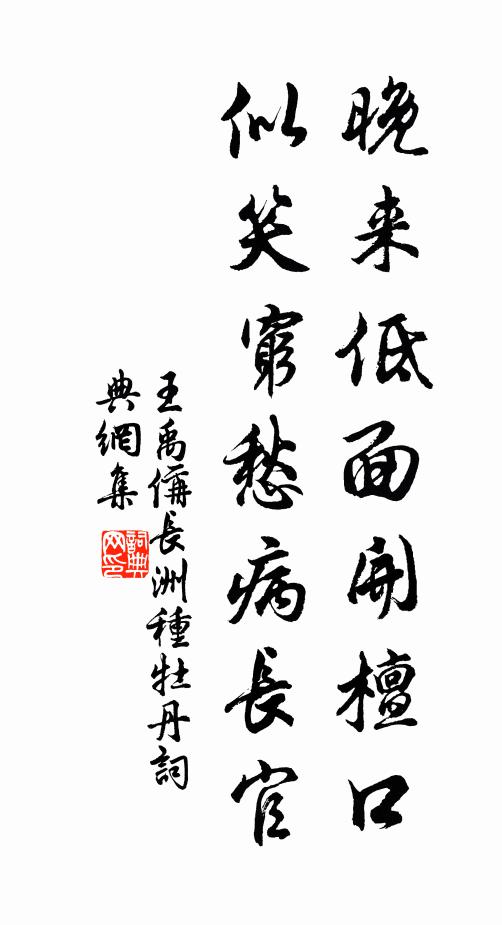 晚来低面開檀口
似笑窮愁病長官
王禹偁長洲種牡丹詞
典網集
詞典网印